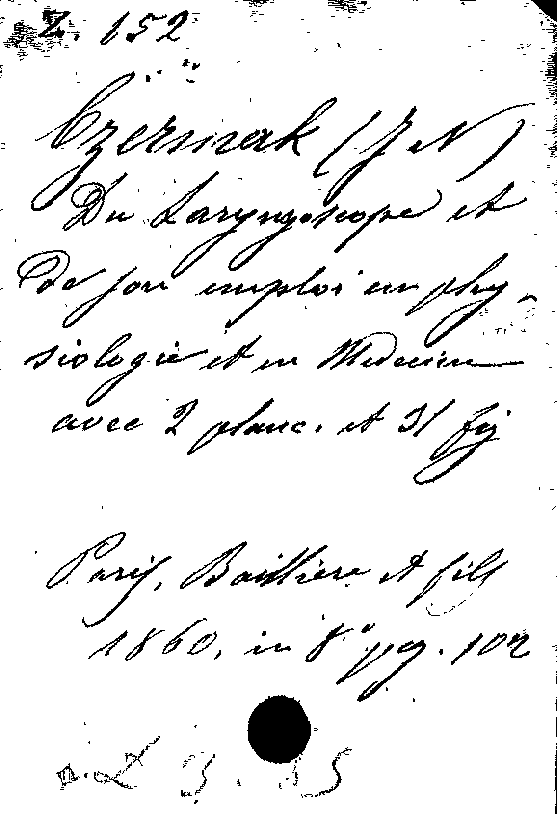 Z. 152
Czermak (J N)
Du Laryngoscope et
de son emploi en phy-
siologie et en Medecine
avec 2 planc. et 31 fig
Paris, Baillière et fils
1860, in 8° pg. 102